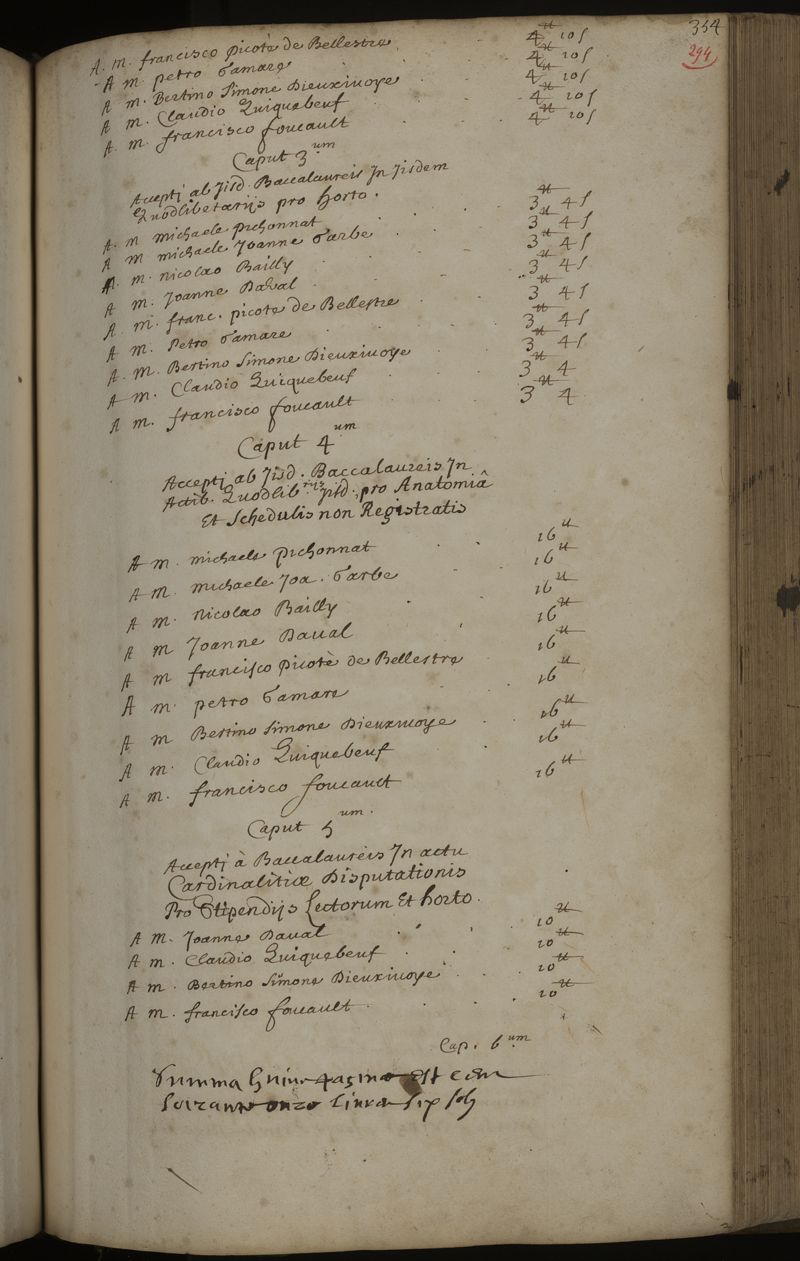 354
294
A. m. francisco picotè de Bellestre 4 ₶ 10 s
A m petro Gamare 4 ₶ 10 s
A m. Bertino Simone Dieuxiuoye 4 ₶ 10 s
A m. Claudio Quiquebeuf 4 ₶ 10 s
A. m. francisco foucault 4 ₶ 10 s
Caput 3um
Accepti ab Jisd. Baccalaureis Jn Jisdem
Quodlibetarijs pro horto.
A. m michaele pichonnat 3 ₶ 4 s
A m michaele Joanne Garbe 3 ₶ 4 s
A m. nicolao Bailly 3 ₶ 4 s
A m. Joanne Daual 3 ₶ 4 s
A m. franc. picote de Bellestre 3 ₶ 4 s
A m. Petro Gamare 3 ₶ 4 s
A. m. Bertino Simone Dieuxiuoye 3 ₶ 4 s
A m. Claudio Quiquebeuf 3 ₶ 4
A m. francisco foucault 3 ₶ 4
Caput 4um
Accepti ab Jisd. Baccalaureis Jn
Actib. Quodlib. pro Anatomiâ
Et Schedulis non Registratis
A m. michaele pichonnat 16 ₶
A m. michaele Joa. Garbe 16 ₶
A m. Nicolao Bailly 16 ₶
A m Joanne Daual 16 ₶
A m francisco picotè de Bellestre 16 ₶
A m. petro Gamare 16 ₶
A m Bertino Simone Dieuxiuoye 16 ₶
A m. Claudio Quiquebeuf 16 ₶
A m. francisco foucault 16 ₶
Caput 5um.
Accepti à Baccalaureis Jn actu
Cardinalitiæ Disputationis
Pro Stipendijs Lectorum Et horto.
A m. Joanne Daual 10 ₶
A m. Claudio Quiquebeuf 10 ₶
A m. Bertino Simone Dieuxiuoye 10 ₶
A m. francisco foucault 10 ₶
Cap. 6um
Summa huius paginæ est